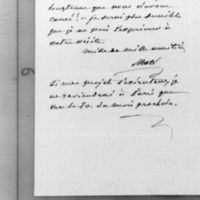 longtemps que nous n'avons
causé! — je serai plus sensible
que je ne puis l'exprimer à
votre visite.
mille et mille amitiés
Si mes projets s'exécutent, je
ne reviendrai à Paris que
vers le 20 du mois prochain.